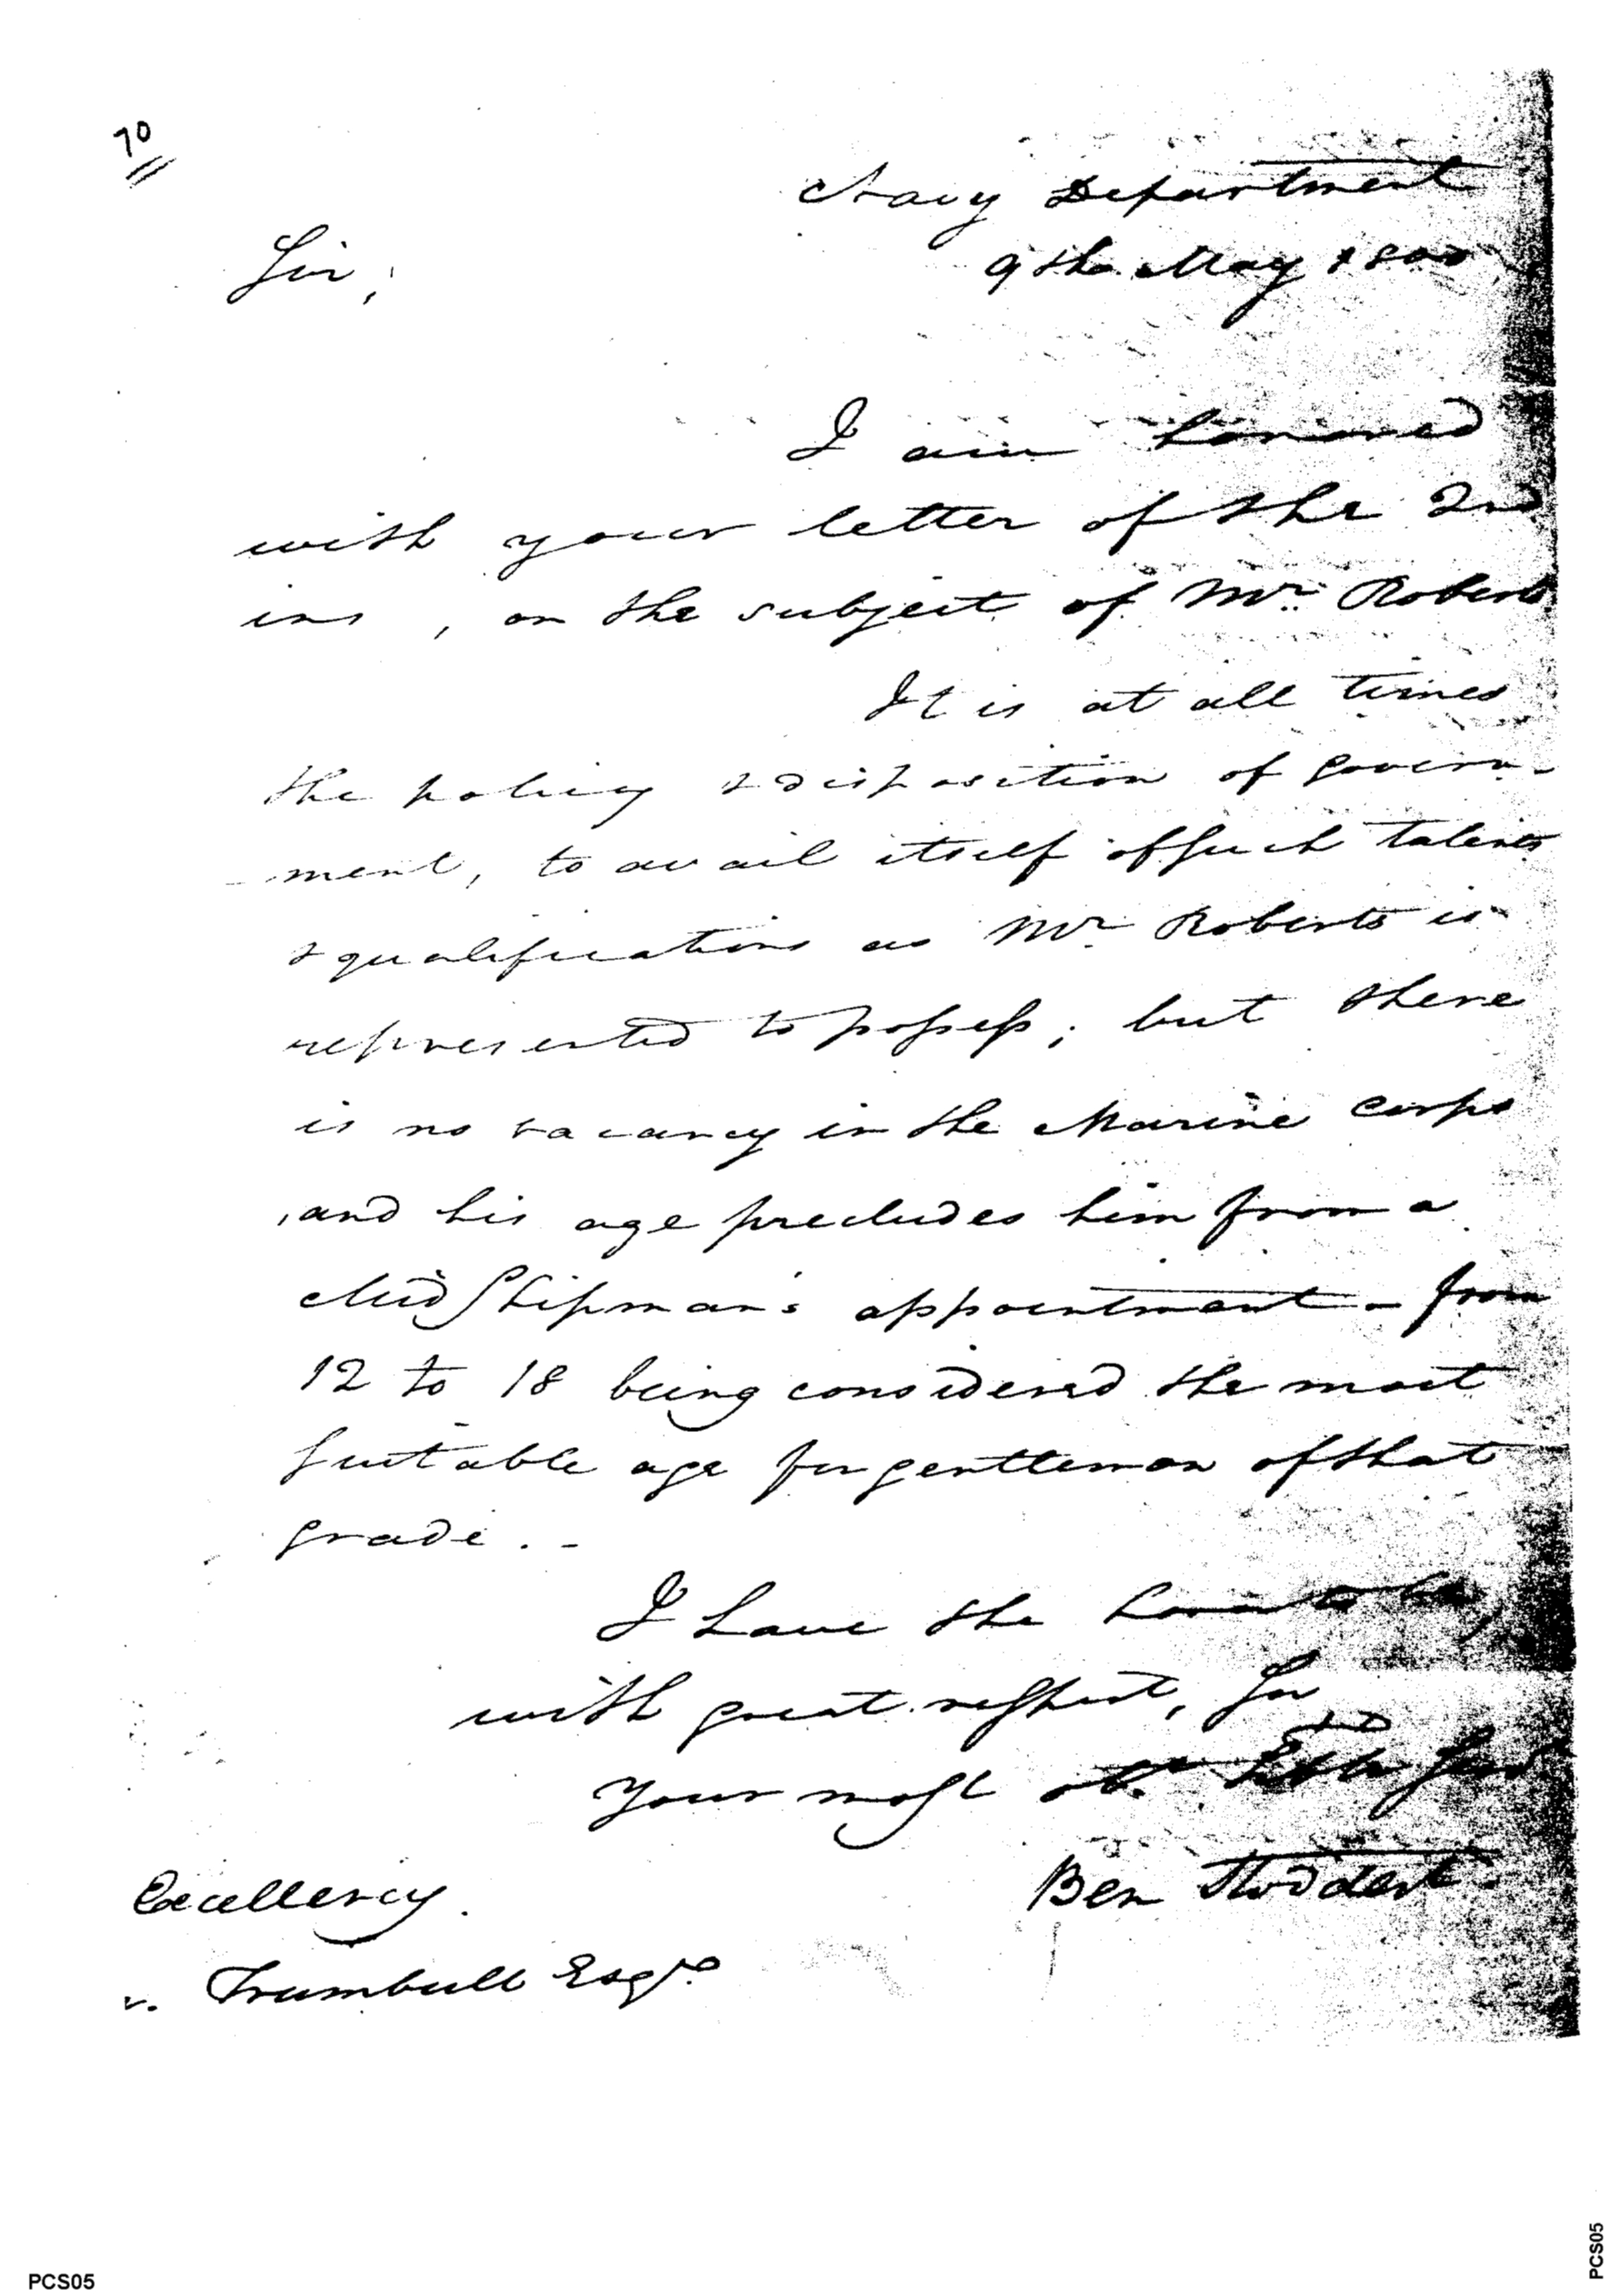 70
Navy Department
9th May 1800
Sir,
I am honored
with your letter of the 2nd
ins , on the subject of Mr. Roberts
It is at all times
the policy & disposition of govern-
-ment, to avail itself of such talents
& qualifications as Mr Roberts is
represented to possess; but there
is no vacancy in the Marine Corps
, and his age precludes him from a
MidShipman's appointment - from
12 to 18 being considered the most
suitable age for gentlemen of that
grade . -
I have the honor to be,
with great respect, Sir
Your most obt. Hble Serv
Ben Stoddert.
Excellency.
Trumbull Esqre
PCS05
PCS05